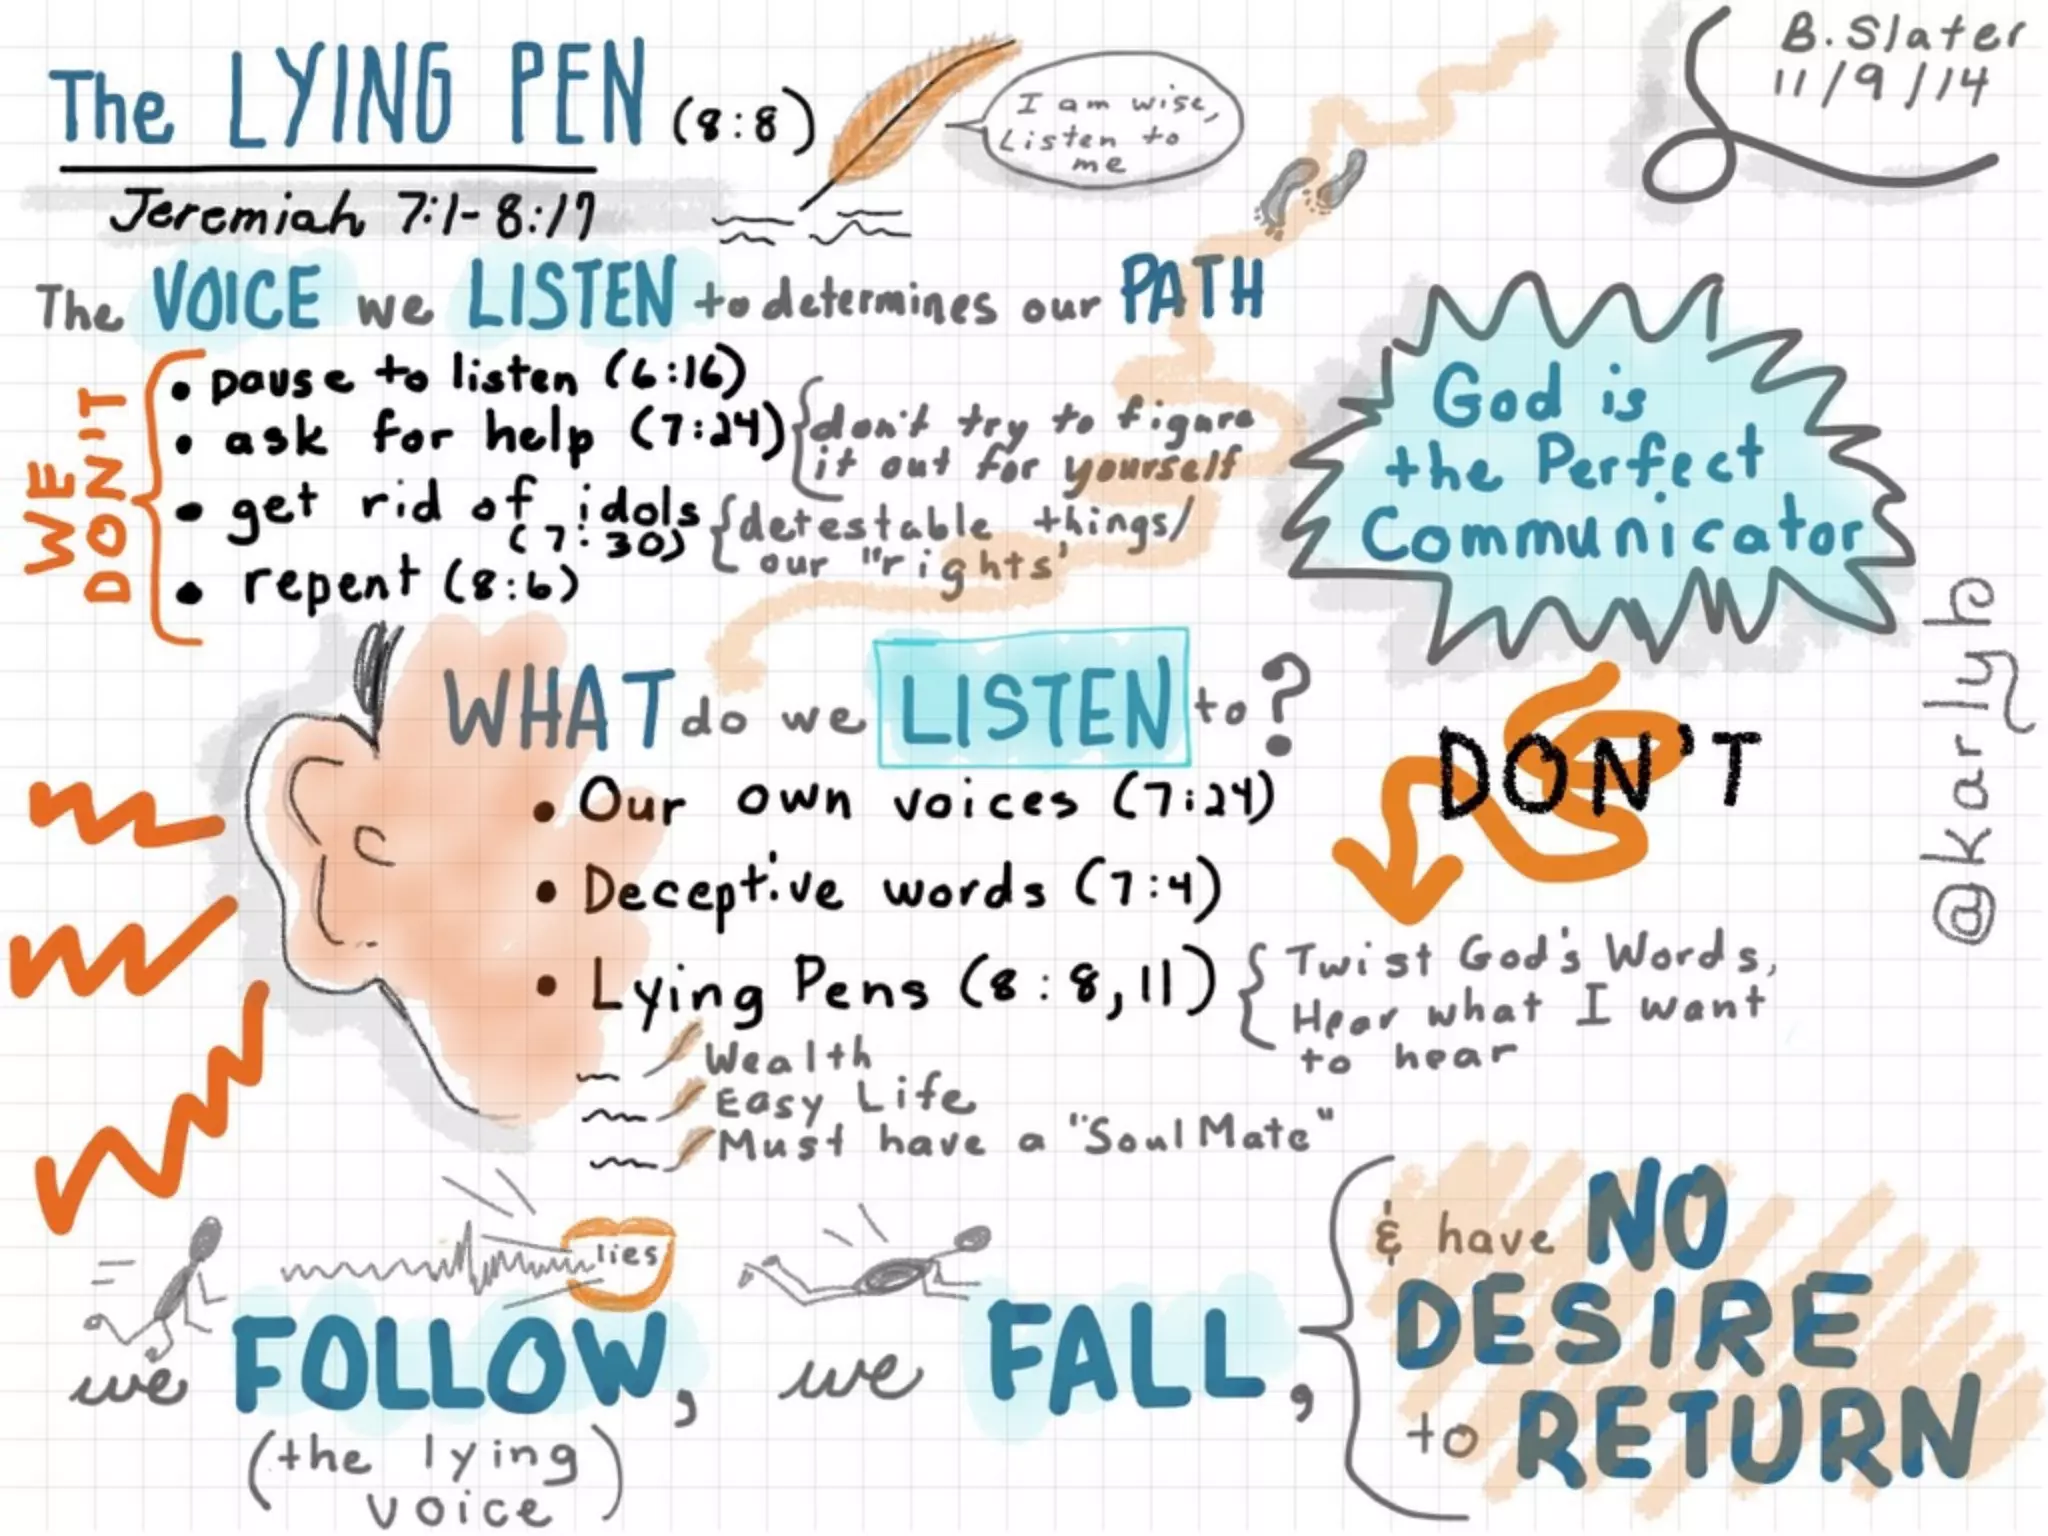 The LYING PEN (8:8)
Jeremiah 7:1-8:17
I am wise,
Listen to
me
B. Slater
11/9/14
The VOICE we LISTEN to determines our PATH
WE
DON'T
• pause to listen (6:16)
• ask for help (7:24)
don't try to figure
it out for yourself
• get rid of idols
(7:30)
detestable things/
our "rights'
• repent (8:6)
God is
the Perfect
Communicator
@karlyb
WHAT do we LISTEN to?
• Our own voices (7:24)
• Deceptive words (7:4)
• Lying Pens (8:8,11)
DON'T
Twist God's Words,
Hear what I want
to hear
Wealth
Easy Life
Must have a "Soul Mate"
lies
we FOLLOW,
(the lying
voice)
we FALL,
& have NO
DESIRE
to RETURN